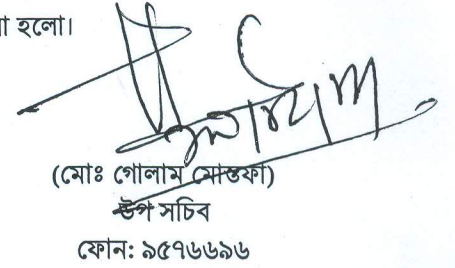 া হলো।
(মোঃ গোলাম মোস্তফা)
উপ সচিব
ফোন: ৯৫৭৬৬৯৬